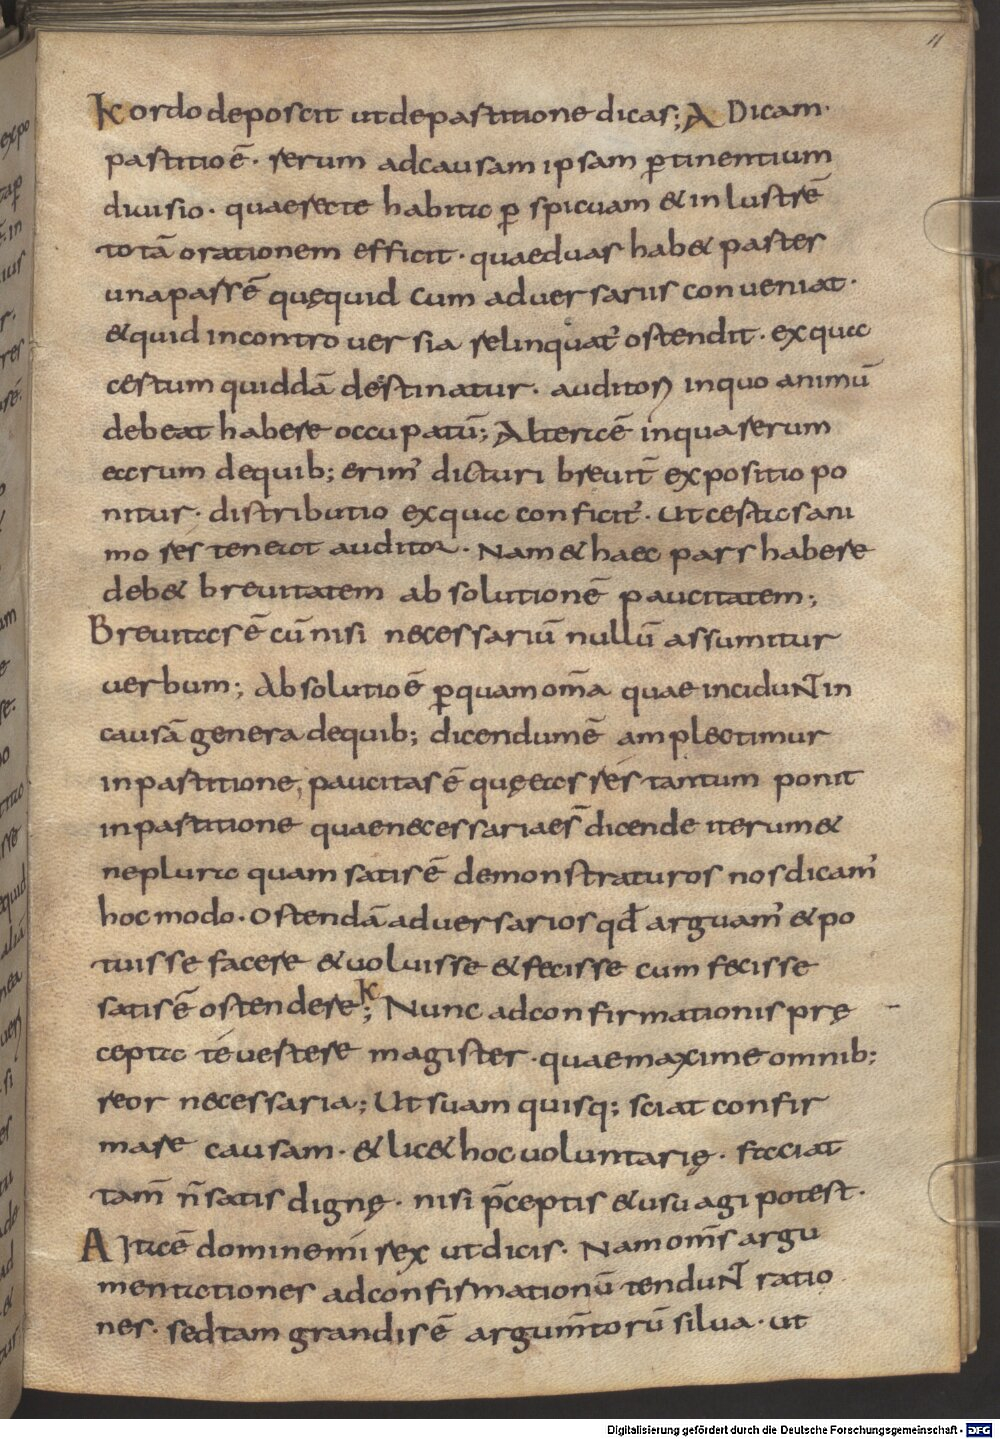 11
K ordo deposcit ut de partitione dicas; A Dicam·
partitio ē· rerum ad causam ipsam ꝑtinentium
diuisio· quae recte habita ꝑ spicuam & inlustrē
totā orationem efficit· quae duas hab& partes
una partē quęquid cum aduersariis conueniat·
& quid in controuersia relinquat᷑ ostendit· ex qua
certum quiddā destinatur· auditoꝝ in quo animū
debeat habere occupatū; Altera ē in qua rerum
earum de quib; erim᷑ dicturi breuit̄ expositio po
nitur· distributio ex qua conficit᷑· Ut certas ani
mo res teneat auditor· Nam & haec pars habere
deb& breuitatem absolutionē paucitatem;
Breuitas ē cū nisi necessariū nullū assumitur
uerbum; Absolutio ē ꝑ quam om̄a quae incidunt in
causā genera de quib; dicendum ē amplectimur
in partitione; paucitas ē quę eas res tantum ponit
in partitione quae necessariae s̄ dicende iterum &
ne plura quam satis ē demonstraturos nos dicam᷑
hoc modo· Ostendā aduersarios qd̄ arguam᷑ & po
tuisse facere & uoluisse & fecisse cum fecisse
satis ē ostendere; K Nunc ad confirmationis prę
cepta te uertere magister· quae maxime omnib;
reor necessaria; Ut suam quisq; sciat confir
mare causam· & lic& hoc uoluntarię· faciat
tam̄ n̄ satis dignę· nisi p̄ceptis & usu agi potest·
A Ita ē domine mi rex ut dicis· Nam om̄s argu
mentationes ad confirmationū tendunt ratio
nes· sed tam grandis ē argum̄torū silua· ut
Digitalisierung gefördert durch die Deutsche Forschungsgemeinschaft - DFG